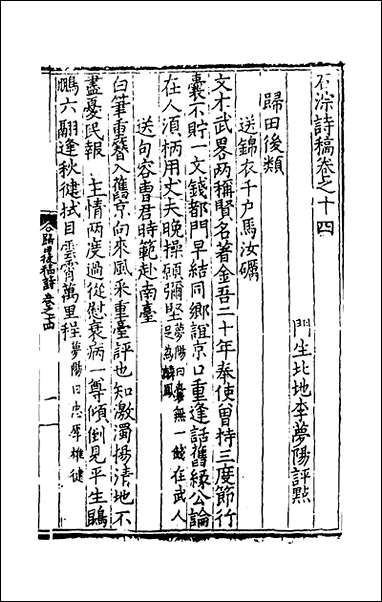 石淙詩稿卷之十四
門生北地李夢陽評點
歸田後類
送錦衣千戶馬汝礪
文才武畧兩稱賢名著金吾二十年奉使曾持三度節行
囊不貯一文錢都門早結同鄉誼京口重逢話舊緣公論
在人須柄用丈夫晚操願彌堅夢陽曰囊無一錢在武人
足為麟鳳
送句容曹君時範赴南臺
白筆重簪入舊京向來風采重臺評也知激濁揚清地不
盡憂民報主情兩度過從慰衰病一尊傾倒見平生鵾
鵬六翮逢秋健拭目雲霄萬里程夢陽曰忠厚雄健
歸田後稿詩 卷之十四
一